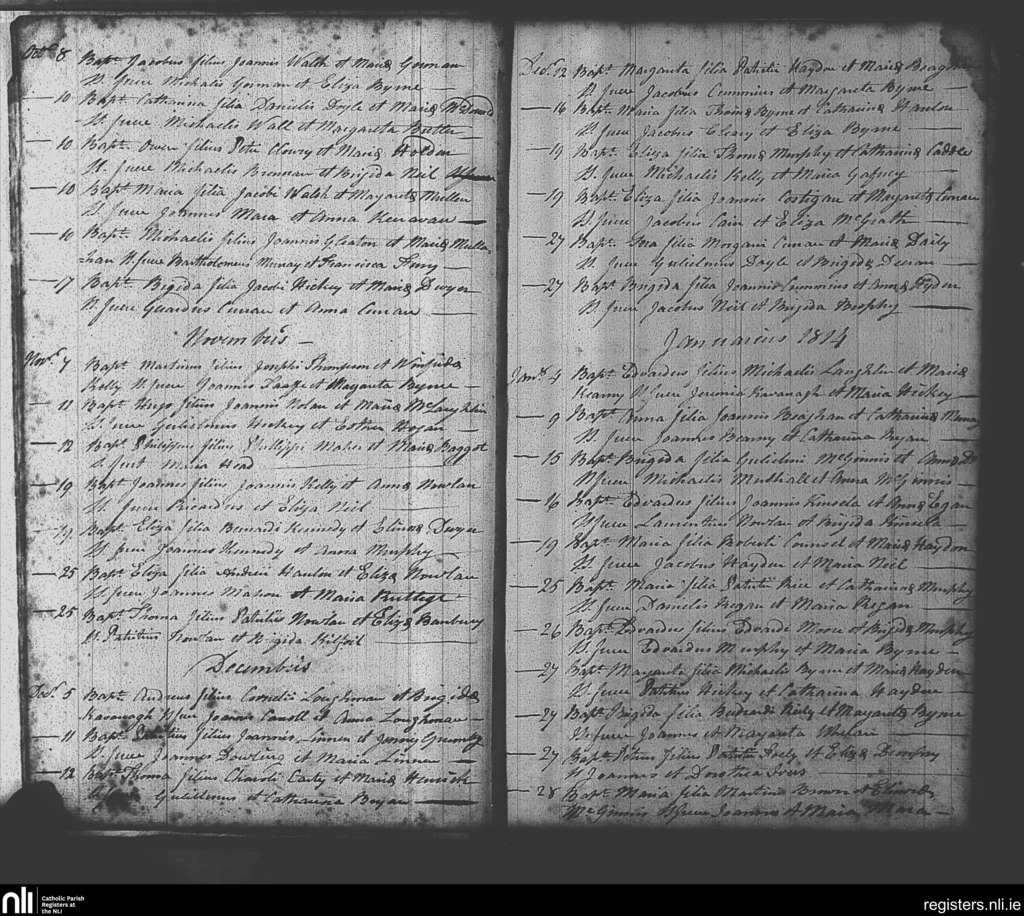 Octr 8 Bapt. Jacobus filius Joannis Walsh et Mariæ Gorman
SS. fuere Michalis Gorman et Eliza Byrne
10 Bapt. Catharina filia Danielis Doyle et Mariæ McDonald
SS. fuere Michaelis Wall et Margareta Butler
10 Bapt. Owen filius Petri Clowry et Mariæ Holden
SS. fuere Michaelis Brennan et Brigida Neil
10 Bapt. Maria filia Jacobi Walsh et Margaretæ Mullen
SS. fuere Joannes Mara et Anna
10 Bapt. Michaelis filius Joannis Gleason et Mariæ Mulla
=han SS. fuere Bartholomeus Murray et Francisca
17 Bapt. Brigida filia Jacobi Hickey et Mariæ Dwyer
SS. fuere Curran et Anna Curran
Novembris
Novr. 7 Bapt. Martinus filius Josephi Thompson et Winifridæ
Kelly SS. fuere Joannis et Margareta Byrne
11 Bapt. Hugo filius Joannis Nolan et Mariæ McLaughlin
SS. fuere Gulielmus Hickey et Esther Hogan
12 Bapt. Philippus filius Phillippi Maher et Mariæ Baggot
S. fuit Maria Head
19 Bapt. Joannes filius Joannis Kelly et Annæ Nowlan
SS. fuere Ricardus et Eliza Neil
19 Bapt. Eliza filia Bernardi Kennedy et Elinoræ Dwyer
SS. fuere Joannes Kennedy et Anna Murphy
25 Bapt. Eliza filia Andreii Hanlon et Elizæ Nowlan
SS. fuere Joannes Mahon et Maria Rutlege
25 Bapt. Thoma filius Patritii Nowlan et Elizæ Banbury
SS. Patritius Nowlan et Brigida Kilfoil
Decembris
Decr. 5 Bapt. Andreas filius Cornelii Loughman et Brigidæ
Kavanagh SS. fuere Joannes Carroll et Anna Loughman
11 Bapt. Patritius filius Joannis Linnen et Jenny
SS. fuere Joannes Dowling et Maria Linnen
12 Bapt. Thoma filius Charoli Carty et Mariæ
Gulielmus et Catharina Bryan
Decr. 12 Bapt. Margareta filia Patritii Haydon et Mariæ
SS. fuere Jacobus Cummins et Margareta Byrne
16 Bapt. Maria filia Thomæ Byrne et Catharinæ Hanlon
SS. fuere Jacobus Cleary et Eliza Byrne
19 Bapt. Eliza filia Thomæ Murphy et Catharinæ
SS. fuere Michaelis Kelly et Maria Gafney
19 Bapt. Eliza filia Joannis Costigan et Margaretæ Curran
SS. fuere Jacobus Cain et Eliza McGrath
27 Bapt. filia Morgani Curran et Mariæ Daily
SS. fuere Gulielmus Doyle et Brigida
27 Bapt. Brigida filia Joannis Cummins et Annæ
SS. fuere Jacobus Neil et Brigida Brophy
Januarius 1814
Janry. 4 Bapt. Edvardus filius Michaelis Laughlin et Mariæ
Kearny SS. fuere Jeremia Kavanagh et Maria Hickey
9 Bapt. Anna filia Joannis et Catharinæ
SS. fuere Joannes Kearny et Catharina Ryan
15 Bapt. Brigida filia Gulielmi McGinnis et Annæ
SS. fuere Michaelis Mulhall et Anna McGinnis
16 Bapt. Edvardus filius Joannis Kinsela et Annæ Egan
SS. fuere Laurentius Nowlan et Brigida Kinsela
19 Bapt. Maria filia Roberti Counsel et Mariæ Haydon
SS. fuere Jacobus Hayden et Maria Neil
25 Bapt. Maria filia Patritii Rice et Catharinæ Murphy
SS. fuere Danielis Regan et Maria Regan
26 Bapt. Edvardus filius Edvardi Moore et Brigidæ Murphy
SS. fuere Edvardus Murphy et Maria Byrne
27 Bapt. Margareta filia Michaelis Byrne et Mariæ Hayden
SS. fuere Patritius Hickey et Catharina Hayden
27 Bapt. Brigida filia Bernardi Reily et Margaretæ Byrne
SS. fuere Joannes et Margareta Whelan
27 Bapt. Petrus filius Patritii et Elizæ
SS. Joannes et Dorothea
28 Bapt. Maria filia Martini Brown et Elinoræ
McGinnis SS. fuere Joannes et Maria Mara
nli Catholic Parish
Registers at
the NLI
registers.nli.ie